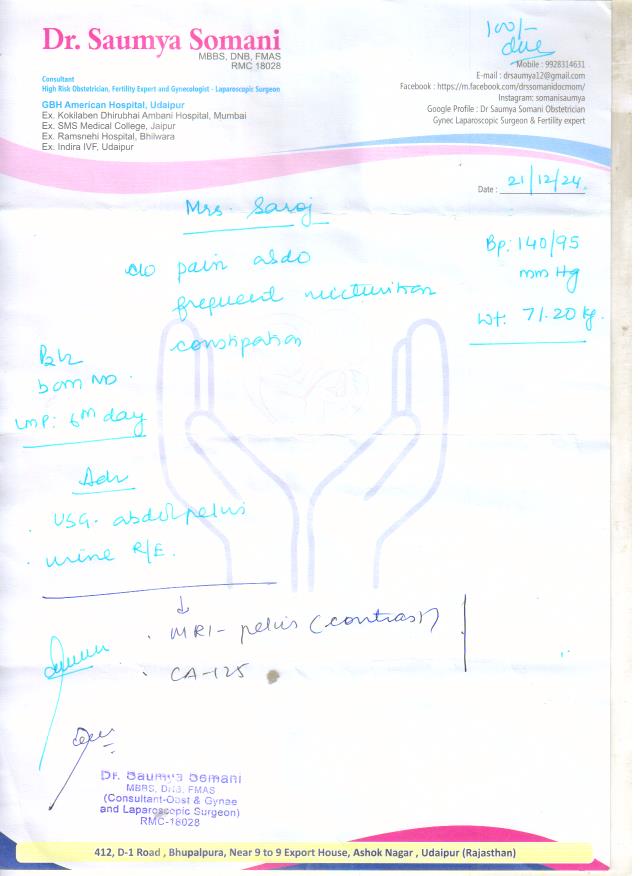 Dr. Saumya Somani
MBBS, DNB, FMAS
RMC 18028
Consultant
High Risk Obstetrician, Fertility Expert and Gynecologist - Laparoscopic Surgeon
GBH American Hospital, Udaipur
Ex. Kokilaben Dhirubhai Ambani Hospital, Mumbai
Ex. SMS Medical College, Jaipur
Ex. Ramsnehi Hospital, Bhilwara
Ex. Indira IVF, Udaipur
100/-
due
Mobile : 9928314631
E-mail : drsaumya12@gmail.com
Facebook : https://m.facebook.com/drssomanidocmom/
Instagram: somanisaumya
Google Profile : Dr Saumya Somani Obstetrician
Gynec Laparoscopic Surgeon & Fertility expert
Date : 21/12/24.
Mrs. Saroj
c/o pain abdo
frequent micturition
constipation
Bp: 140/95
mm Hg
Wt: 71.20 kg.
P2L2
both ND.
LMP: 6th day
Adv
. USG- abdo/pelvis
. urine R/E.
↓
. MRI- pelvis (contrast)
. CA-125
Dr. Saumya Somani
MBBS, DNB, FMAS
(Consultant-Obst & Gynae
and Laparoscopic Surgeon)
RMC-18028
412, D-1 Road , Bhupalpura, Near 9 to 9 Export House, Ashok Nagar , Udaipur (Rajasthan)